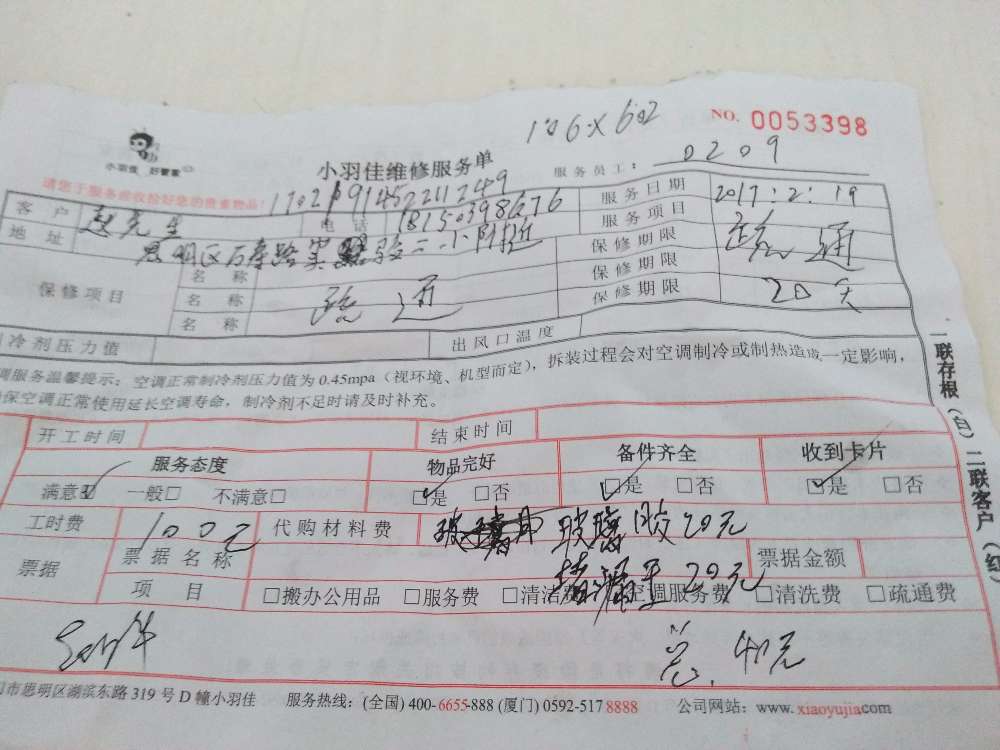 106×602
NO. 0053398
小羽佳 好管家
小羽佳维修服务单
服务员工: 0209
请您于服务前收捡好您的贵重物品!
1702191452211249
客户 赵先生 电话 18150398676 服务日期 2017.2.19
地址 思明区万寿路实验二小附近 服务项目 疏通
保修项目 名称 保修期限
名称 疏通 保修期限 20天
名称 保修期限
冷剂压力值 出风口温度
调服务温馨提示:空调正常制冷剂压力值为0.45mpa(视环境、机型而定),拆装过程会对空调制冷或制热造成一定影响,
保空调正常使用延长空调寿命,制冷剂不足时请及时补充。
开工时间 结束时间
服务态度 物品完好 备件齐全 收到卡片
满意☑ 一般□ 不满意□ ☑是 □否 ☑是 □否 ☑是 □否
工时费 100元 代购材料费 玻璃胶20元
票据 票据名称 堵漏王20元 票据金额
项目 □搬办公用品 □服务费 □清洁 空调服务费 □清洗费 □疏通费
总.40元
市思明区湖滨东路319号D幢小羽佳 服务热线:(全国)400-6655-888(厦门)0592-5178888 公司网站:www.xiaoyujia.com
一联存根(白)二联客户(红)